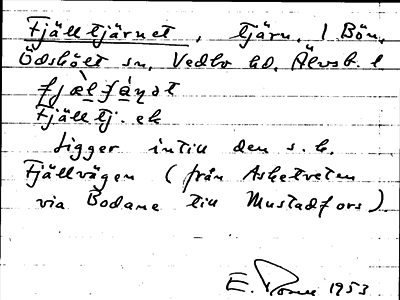 Fjälltjärnet, tjärn. / Bön,
Ödskölt sn, Vedbo hd, Älvsb. l
Fjälltj. ek
Ligger intill den s. k.
Fjällvägen (från Asketveten
via Bodane till Mustadfors).
E. 1953